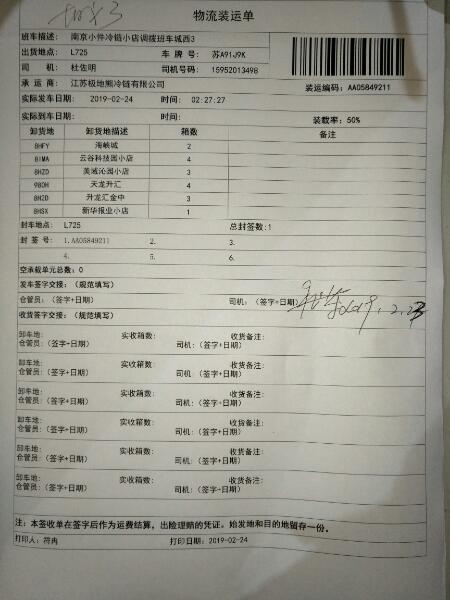 城西3
物流装运单
班车描述： 南京小件冷链小店调拨班车城西3
出货地点： L725 车 牌 号： 苏A91J9K
司 机： 杜佐明 司机号码： 15952013498
承 运 商： 江苏极地熊冷链有限公司 装运编码： AA05849211
实际发车日期： 2019-02-24 时间： 02:27:27
实际到车日期： 时间： 装载率： 50%
卸货地 卸货地描述 箱数 备注
8HFY 海峡城 2
8IMA 云谷科技园小店 4
8HZD 美域沁园小店 3
980H 天龙升汇 4
8H2D 升龙汇金中 3
8HSX 新华报业小店 1
封车地点： L725 总封签数:1
封 签 号： 1.AA05849211 2. 3.
4. 5. 6.
空承载单元总数： 0
发车签字交接：（规范填写）
仓管员：（签字+日期） 司机：（签字+日期） 2019.2.23
收货签字交接：（规范填写）
卸车地： 实收箱数： 收货备注：
仓管员：（签字+日期） 司机：（签字+日期）
卸车地： 实收箱数： 收货备注：
仓管员：（签字+日期） 司机：（签字+日期）
卸车地： 实收箱数： 收货备注：
仓管员：（签字+日期） 司机：（签字+日期）
卸车地： 实收箱数： 收货备注：
仓管员：（签字+日期） 司机：（签字+日期）
卸车地： 实收箱数： 收货备注：
仓管员：（签字+日期） 司机：（签字+日期）
卸车地： 实收箱数： 收货备注：
仓管员：（签字+日期） 司机：（签字+日期）
注：本签收单在签字后作为运费结算，出险理赔的凭证。始发地和目的地留存一份。
打印人：符冉 打印日期：2019-02-24